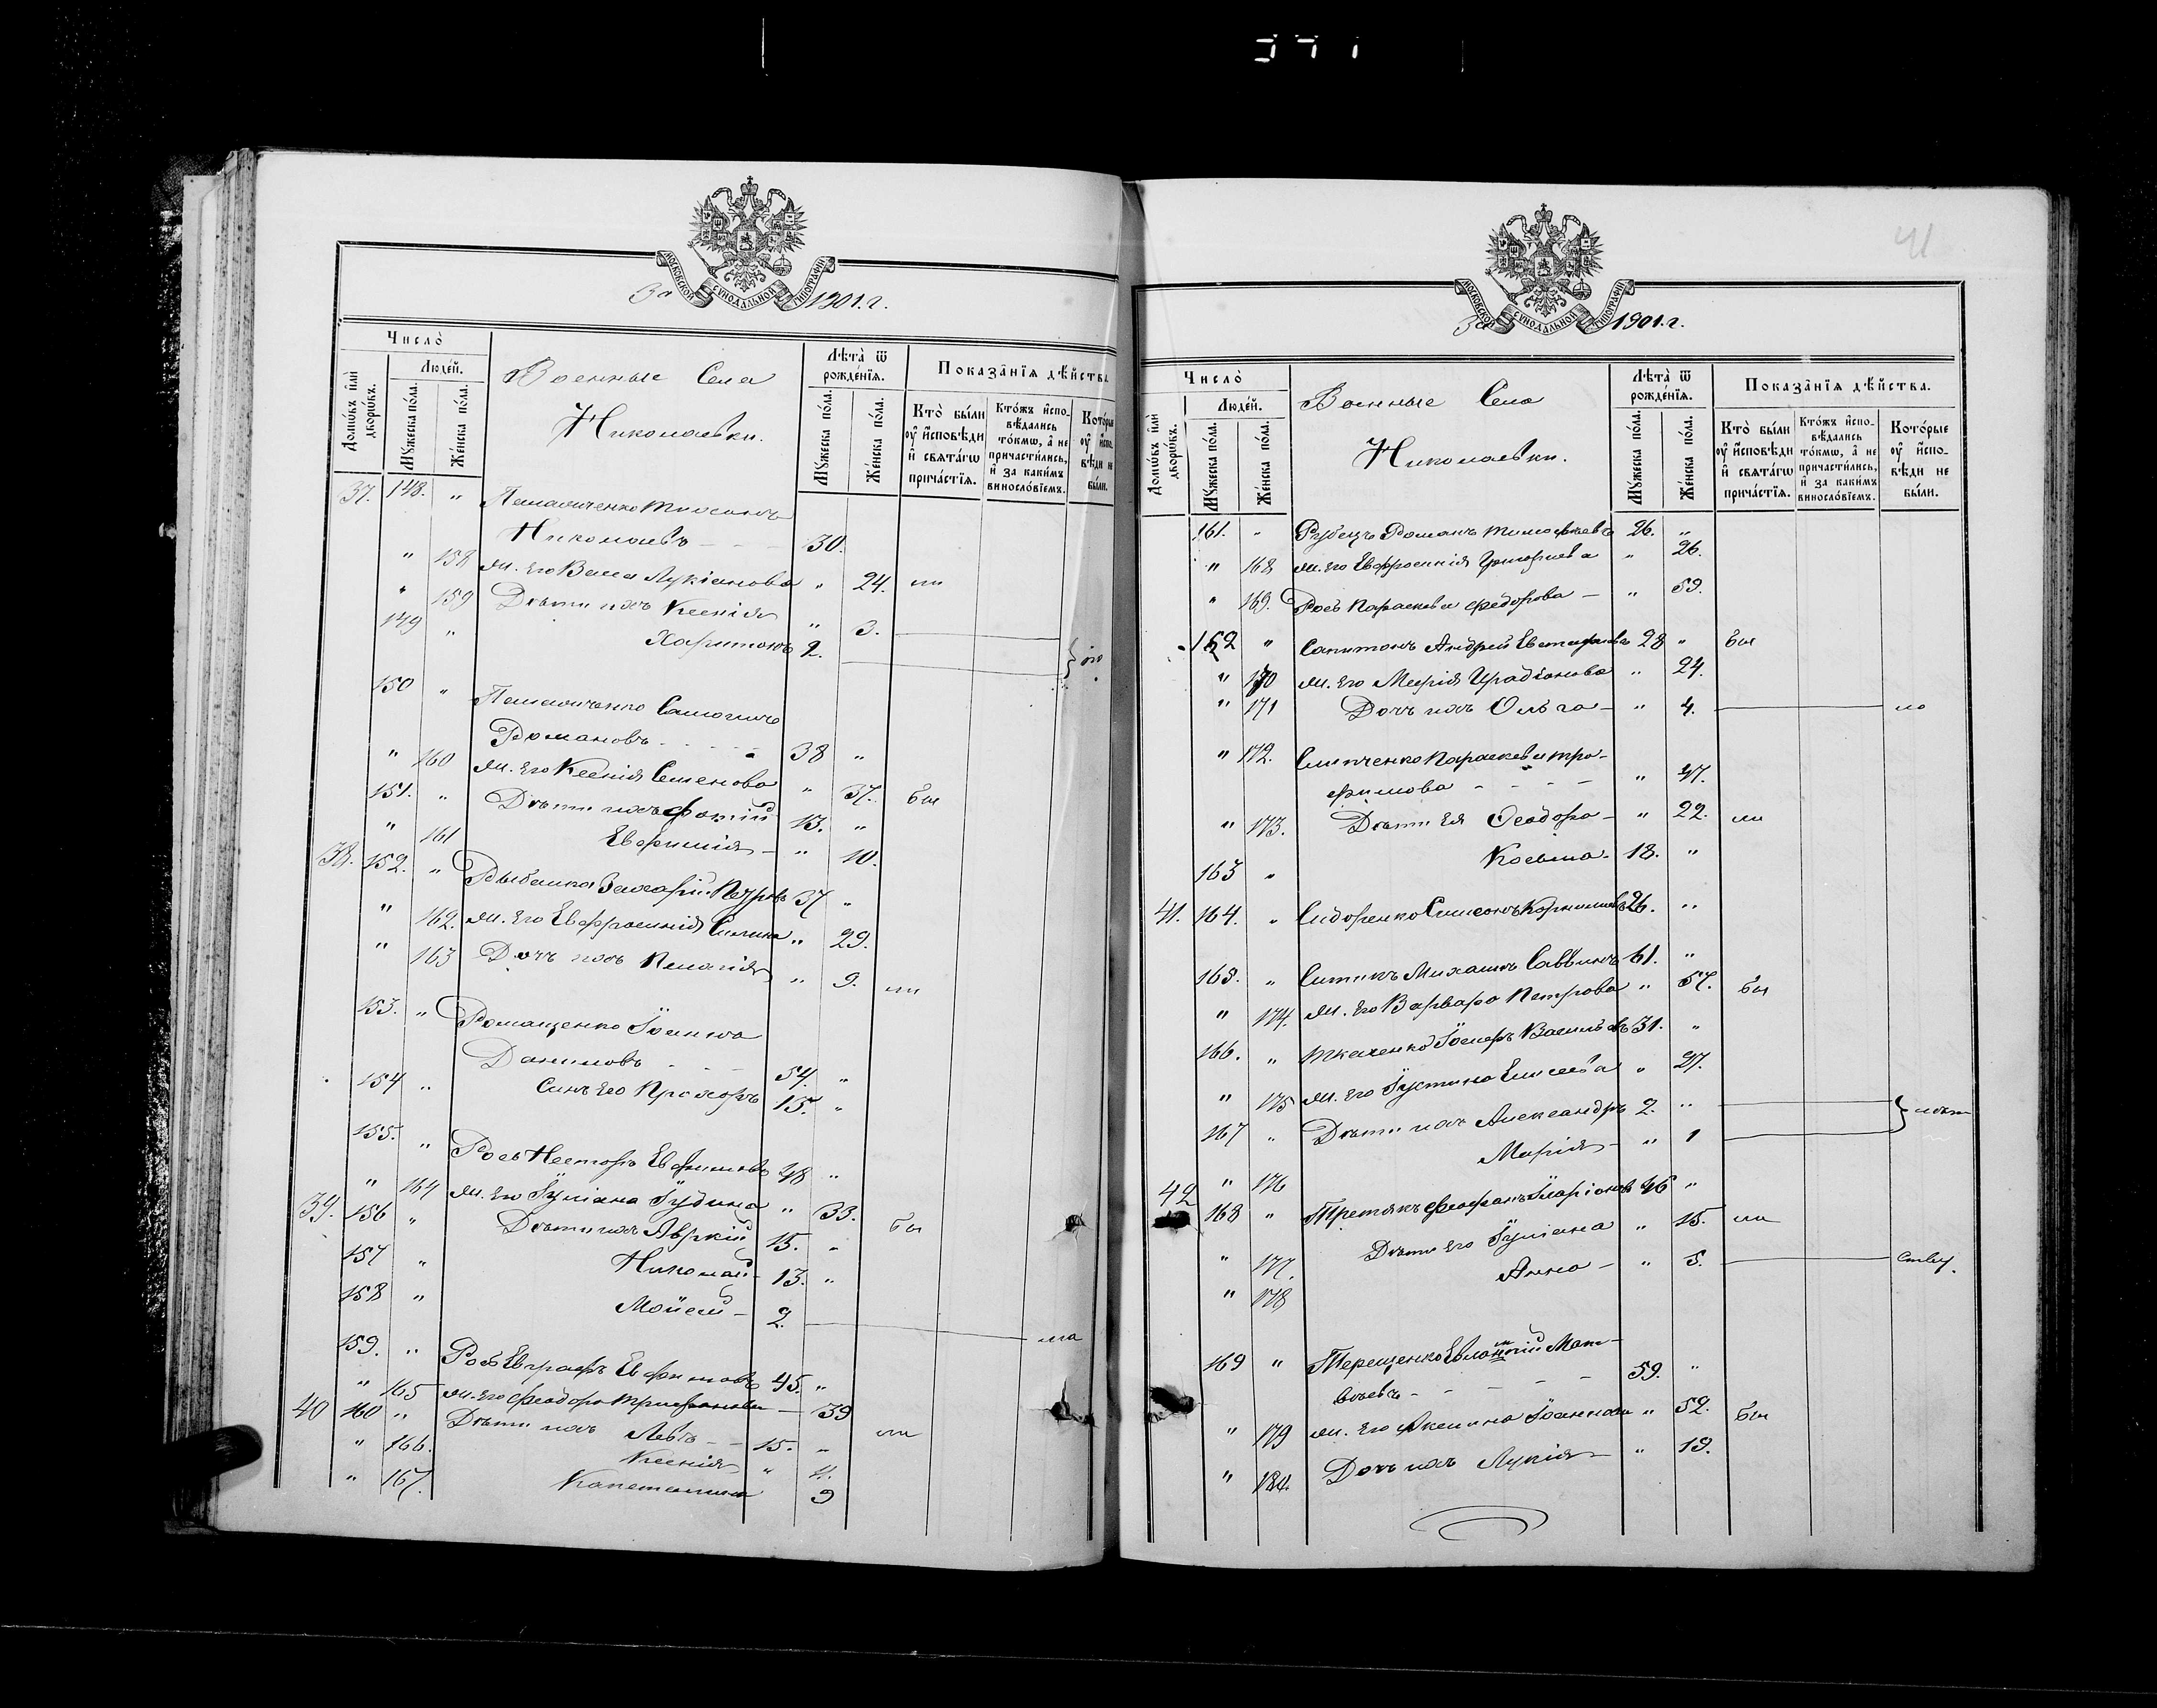 41
МОСКОВСКОЙ СѴНОДАЛЬНОЙ ТИПОГРАФІИ
За 1901. г.
Число̀
Домѡ́въ и҆лѝ дворѡ́въ.
Люде́й.
Мꙋ́жеска по́ла.
Же́нска по́ла.
Военные Села
Николаевки.
Лѣ́та ѿ рожде́нїѧ.
Мꙋ́жеска по́ла.
Же́нска по́ла.
Показа̑нїѧ дѣ́йства
Кто̀ бы́ли ᲂу҆ и҆сповѣ́ди и҆ свѧта́гѡ прича́стїѧ.
Кто́жъ и҆спо-вѣ́дались то́кмѡ, а҆ не причасти́лись, и҆ за каки́мъ винословїемъ.
Кото́рые ᲂу҆ и҆спо-вѣ́ди не бы́ли.
37. 148. "
Николаевъ - - - 30.
" 158 ж. его Васса Лукіанова " 24. ли
" 159 Дѣти ихъ Ксенія " 3.
149 " Харитонъ 2.
150 "
Романовъ - - - - - 38 "
" 160 ж. его Ксенія Семенова " 37. бы
151. " Дѣти ихъ Фотій 13. "
" 161 Евфимія - " 10.
38. 152. " Захарій Петровъ 37 "
" 162. ж. его Евфросинія " 29.
" 163 Дочь ихъ Пелагія " 9. ли
153. " Романценко Іоаннъ
Даниловъ - - - 54. "
154 " Сынъ его Прохоръ 15. "
155. " Рось Несторъ Евфимовъ 48 "
" 164 ж. его Іуліана Іудина " 33. бы
39. 156 " Дѣти ихъ Аврамій 15. "
157 " Николай - 13. "
158 " Моисей - 2. ма
159. " Рось Евграфъ Евфимовъ 45. "
" 165 ж. его Феодора Трифонова - 39
40 160 " Дѣти ихъ Левъ - - 15. - ли
" 166. Ксенія " 11.
" 167. Капетолина 9
МОСКОВСКОЙ СѴНОДАЛЬНОЙ ТИПОГРАФІИ
За 1901. г.
Число̀
Домѡ́въ и҆лѝ дворѡ́въ.
Люде́й.
Мꙋ́жеска по́ла.
Же́нска по́ла.
Военные Села
Николаевки.
Лѣ́та ѿ рожде́нїѧ.
Мꙋ́жеска по́ла.
Же́нска по́ла.
Показа̑нїѧ дѣ́йства.
Кто̀ бы́ли ᲂу҆ и҆сповѣ́ди и҆ свѧта́гѡ прича́стїѧ.
Кто́жъ и҆спо-вѣ́дались то́кмѡ, а҆ не причасти́лись, и҆ за каки́мъ винословїемъ.
Кото́рые ᲂу҆ и҆спо-вѣ́ди не бы́ли.
161. " Рубецъ Романъ Тимофѣевъ 26. "
" 168 ж. его Евфросинія Григоріева " 26.
" 169. Рось Параскева Федорова - " 59.
162 " Сапитонъ Андрей Евстафіевъ 28 " бы
" 170 ж. его Марія Иродіонова " 24.
" 171 Дочь ихъ Ольга - " 4. ло
" 172. Слипченко Параскева Тро-
фимова - - - - " 47.
" 173. Дѣти ея Феодора - " 22. ли
163 " Косьма - 18. "
41. 164. " Сидоренко Симеонъ Корниліевъ 26. "
165. " Ситникъ Михаилъ Саввинъ 61. "
" 174. ж. его Варвара Петрова " 57. бы
166. " Ткаченко Іосифъ Васильевъ 31. "
" 175 ж. его Іустина Елисеева " 27.
167 " Дѣти ихъ Александръ 2. " лѣт
" 176 Марія - " 1
42 168 " Третякъ Феофанъ Иларіоновъ 46 "
" 177. Дѣти его Іуліана " 15. ли
" 178 Анна - " 5. ству.
169 " Терещенко Евлампій Мат-
вѣевъ - - - - - 59. "
" 179 ж. его Акилина Іоаннова " 52. бы
" 184 Дочь ихъ Лукія - " 19.